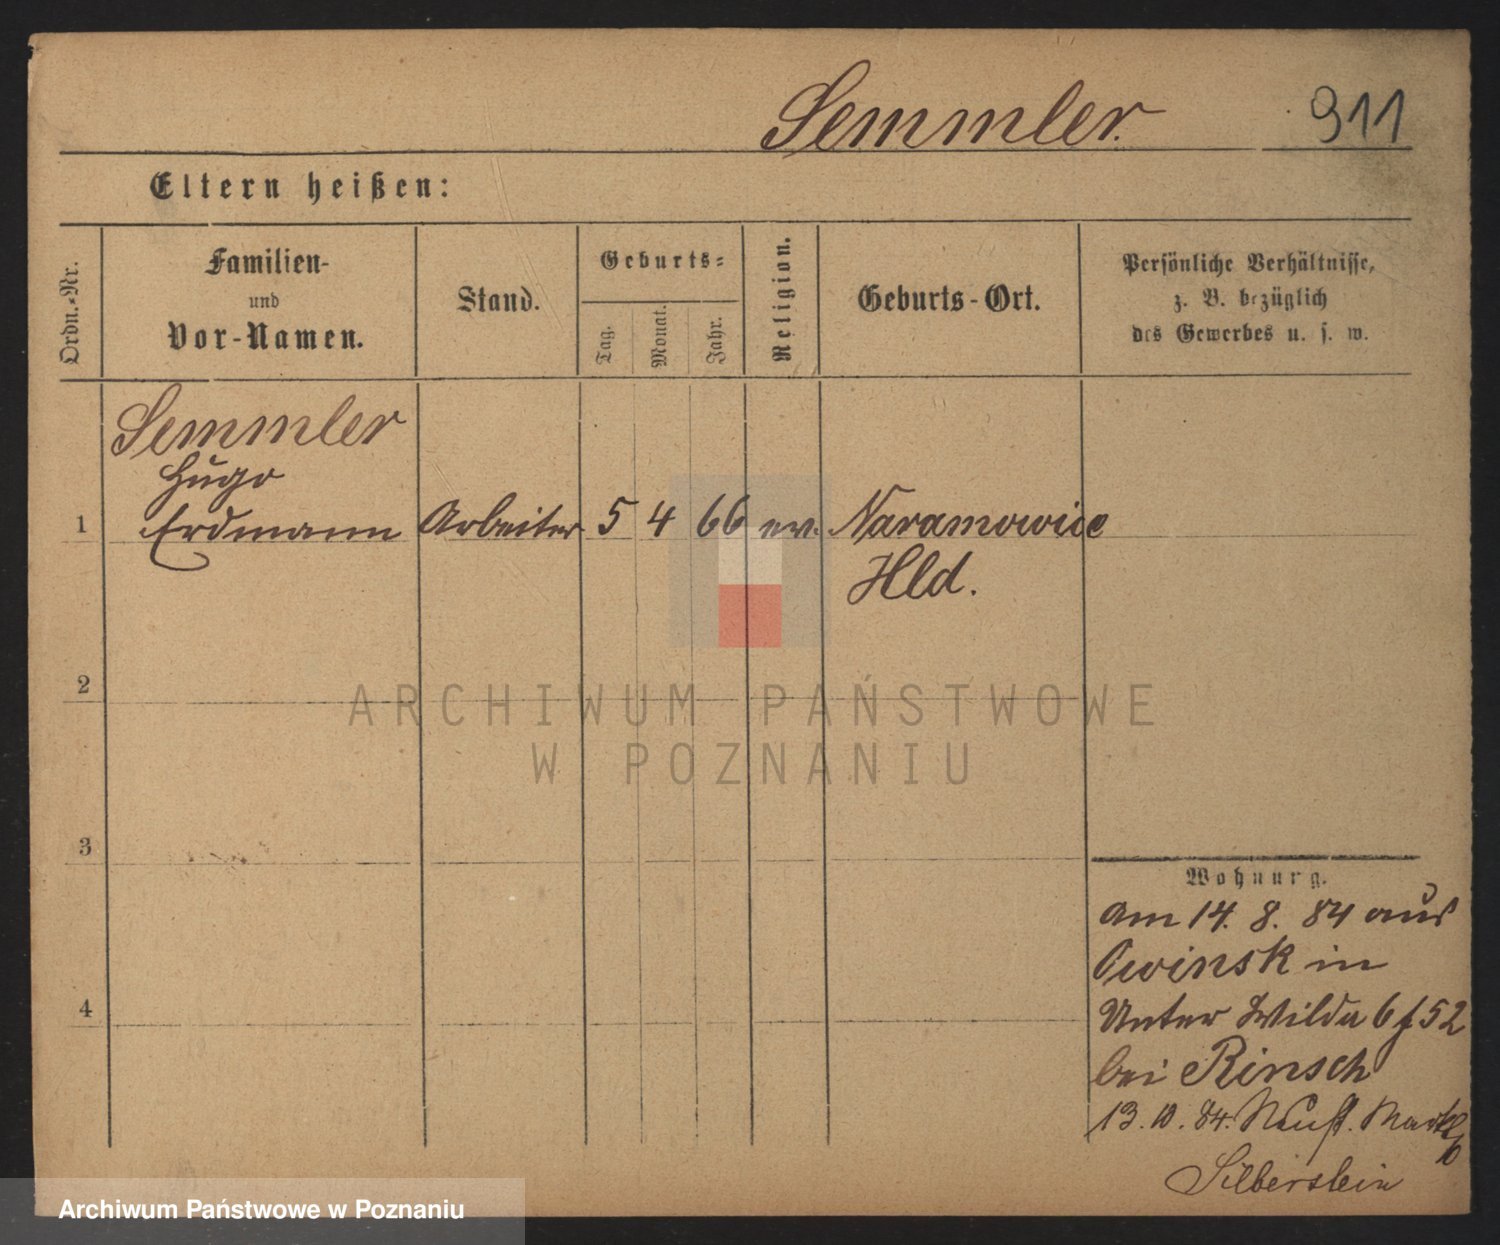 Semmler. 911
Eltern heißen:
Ordn.-Nr.
Familien-
und
Vor-Namen.
Stand.
Geburts-
Tag.
Monat.
Jahr.
Religion.
Geburts-Ort.
Persönliche Verhältnisse,
z. B. bezüglich
des Gewerbes u. s. w.
Semmler
Hugo
1 Erdmann Arbeiter 5 4 66 ev. Naramowice
Hld.
2
ARCHIWUM PAŃSTWOWE
W POZNANIU
3
4
Wohnung.
am 14. 8. 84 aus
Owinsk in
Unter Wilda 6 f 52
bei Rinsch
13. 10. 84. Neust. Markt
Silberstein
Archiwum Państwowe w Poznaniu